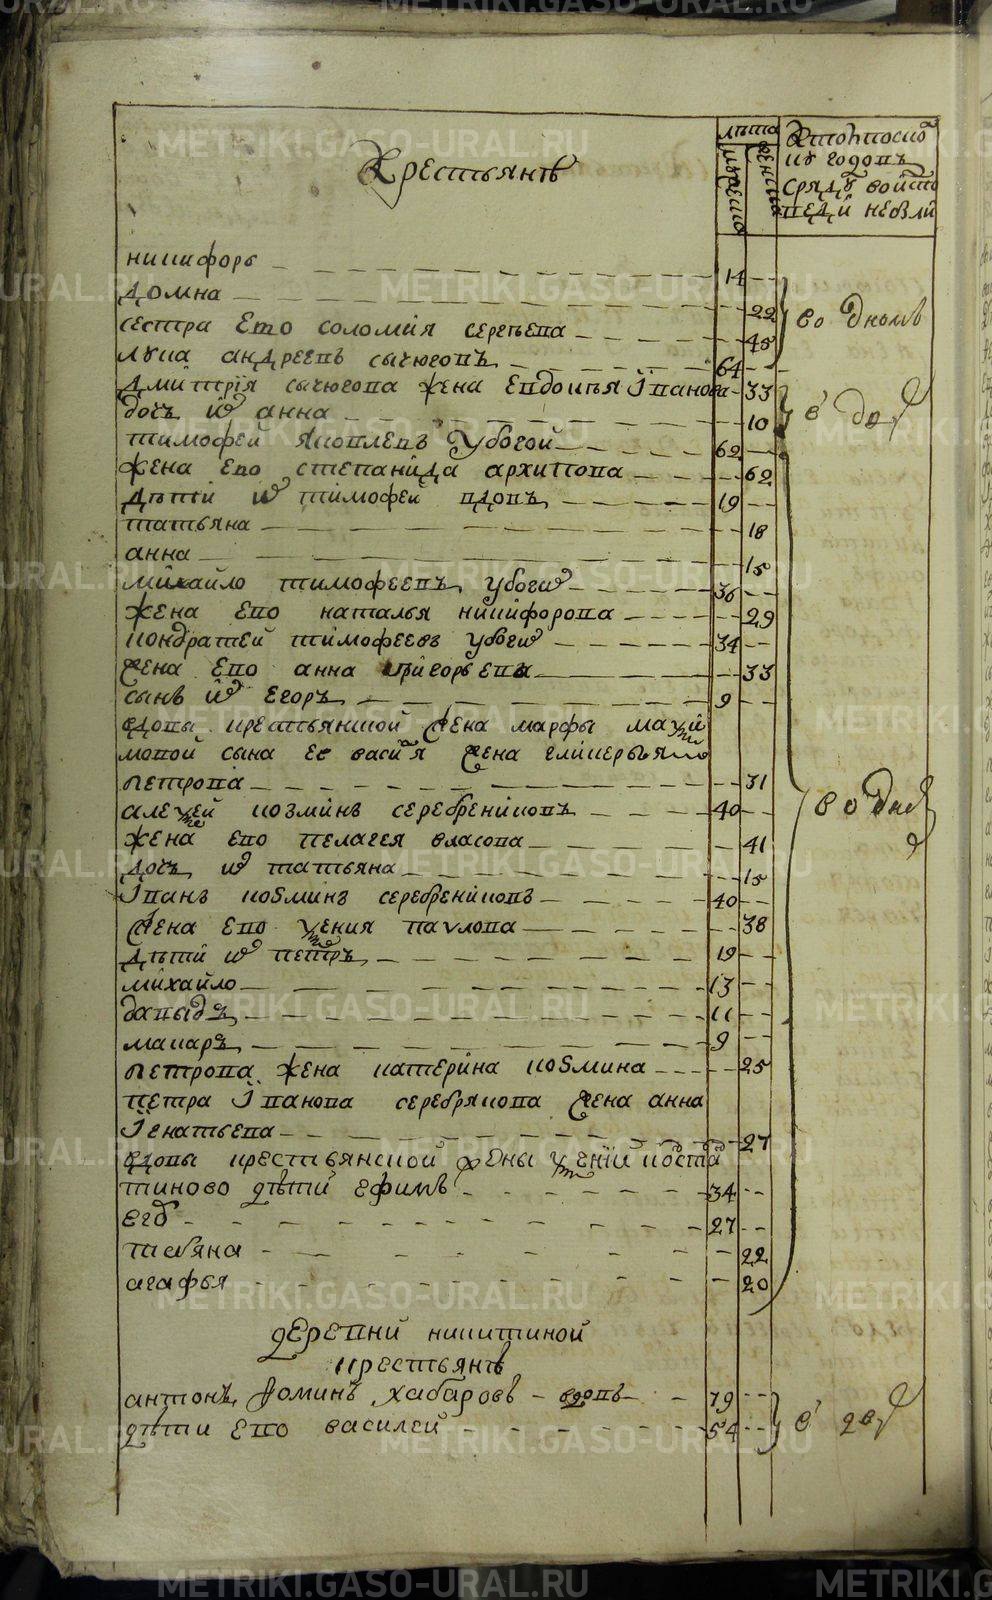 METRIKI.GASO-URAL.RU
Крестьянѣ
лѣта
мужеска
женска
никифоръ 14
домна 22
сестра Ево соломия сергѣева 45
лука андреевъ сычюговъ 64
во дномъ
дмитрия сычюгова жена Евдокѣя Іванова 33
дочь их анна 10
в дву
тимофей яковлевъ убогой 62
жена Ево степанида архипова 62
дѣти их тимофей вдовъ 19
татьяна 18
анна 15
михайло тимофеевъ убогих 36
жена Ево наталья никифорова 29
кондратей тимофеевъ убогих 34
жена Ево анна григорьева 33
сынъ их Егоръ 9
вдовы крестьянской жена марфы макси
мовой сына Ее васил я жена гликерья
петрова 31
алексей козминъ серебрениковъ 40
жена Ево пелагея власова 41
дочь их татьяна 15
Іванъ козминъ серебрениковъ 40
жена Ево ксения павлова 38
дѣти их петръ 19
михайло 13
давыдъ 11
макаръ 9
петрова жена катерина козмина 25
петра Іванова серебрякова жена анна
Ігнатьева 27
вдовы крестьянской жены ксении коста
тиново дѣти ефимъ 34
егор 27
татьяна 22
агафья 20
деревни никитиной
крестьянѣ
антонъ фоминъ хабаровъ вдовъ 79
дѣти Ево василей 54
в дву